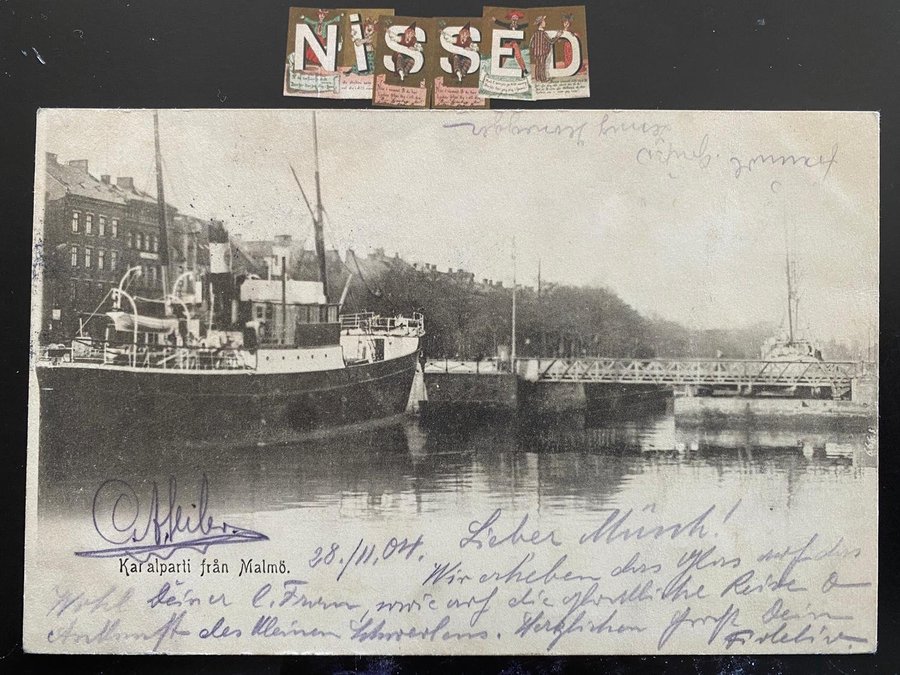 NiSSED
Lieber Münch!
28./11.04.
Kanalparti från Malmö.
Wir erheben das Glas auf das
Wohl Deiner l. Frau, sowie auf die glückliche Reise &
Ankunft des kleinen Herzlichen Gruß Dein